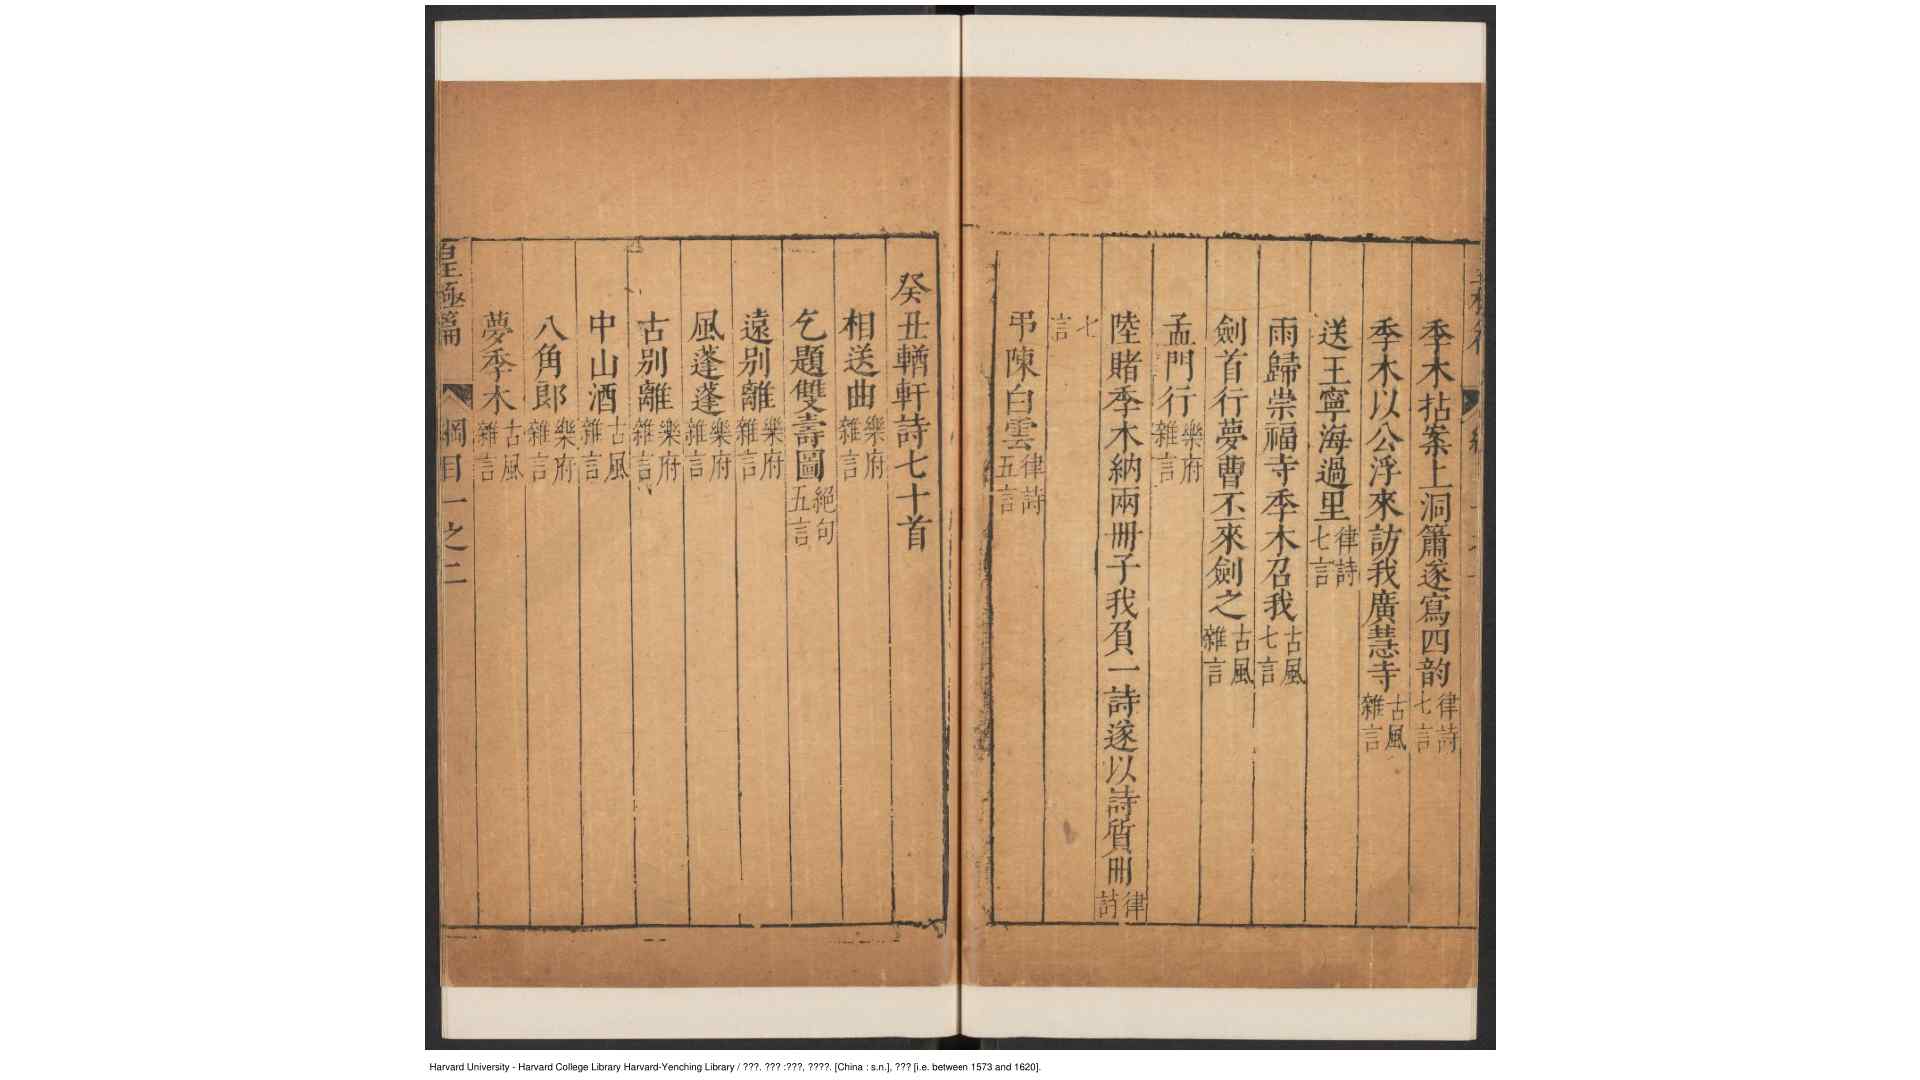 季木拈案上洞簫遂寫四韵律詩七言
季木以公浮來訪我廣慧寺古風雜言
送王寧海過里律詩七言
雨歸崇福寺季木召我古風七言
劍首行夢曹丕來劍之古風雜言
孟門行樂府雜言
陸賭季木納兩冊子我負一詩遂以詩質冊律詩
七言
弔陳白雲律詩五言
癸丑輶軒詩七十首
相送曲樂府雜言
乞題雙壽圖絕句五言
遠別離樂府雜言
風蓬蓬樂府雜言
古別離樂府雜言
中山酒古風雜言
八角郎樂府雜言
夢季木古風雜言
皇極篇 綱目一之二
Harvard University - Harvard College Library Harvard-Yenching Library / ???. ??? :???, ????. [China : s.n.], ??? [i.e. between 1573 and 1620].